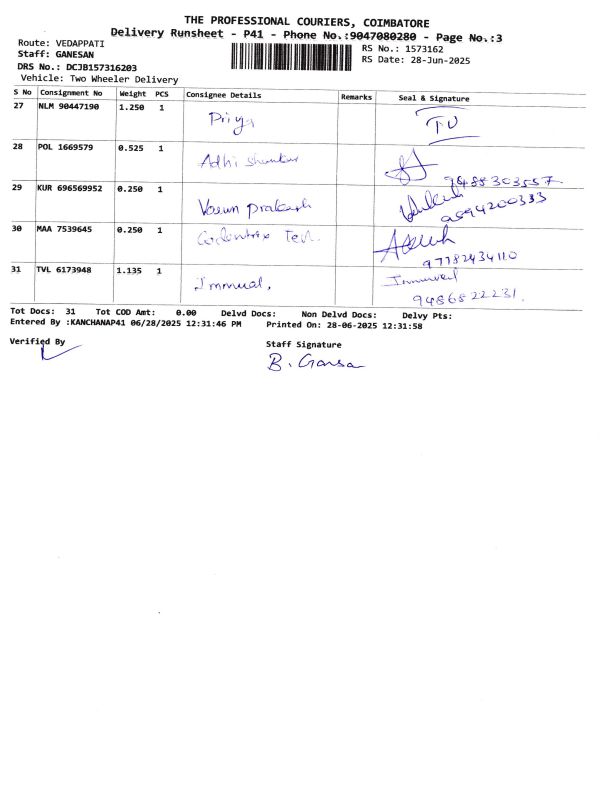 THE PROFESSIONAL COURIERS, COIMBATORE
Delivery Runsheet - P41 - Phone No.:9047080280 - Page No.:3
Route: VEDAPPATI
Staff: GANESAN
RS No.: 1573162
DRS No.: DCJB157316203
RS Date: 28-Jun-2025
Vehicle: Two Wheeler Delivery
S No Consignment No Weight PCS Consignee Details Remarks Seal & Signature
27 NLM 90447190 1.250 1 Priya
28 POL 1669579 0.525 1 Adhi Shankar
9488303557
29 KUR 696569952 0.250 1 Varun prakash
9894200333
30 MAA 7539645 0.250 1 Tech.
97782434110
31 TVL 6173948 1.135 1 Immual,
9486822231.
Tot Docs: 31 Tot COD Amt: 0.00 Delvd Docs: Non Delvd Docs: Delvy Pts:
Entered By :KANCHANAP41 06/28/2025 12:31:46 PM Printed On: 28-06-2025 12:31:58
Verified By
Staff Signature